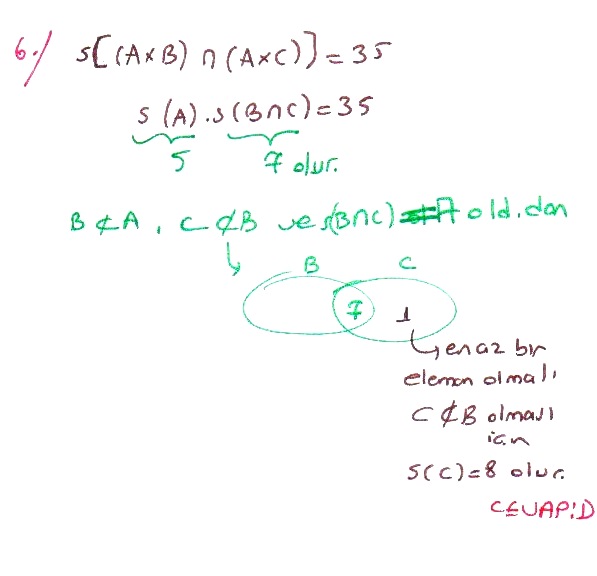 6./ s[(A×B) ∩ (A×C)] = 35
s(A).s(B∩C) = 35
5 7 olur.
B ⊄ A, C ⊄ B ve s(B∩C) = 7 old. dan
B C
7 1
en az bir
eleman olmalı
C ⊄ B olması
için
s(C) = 8 olur.
CEVAP: D